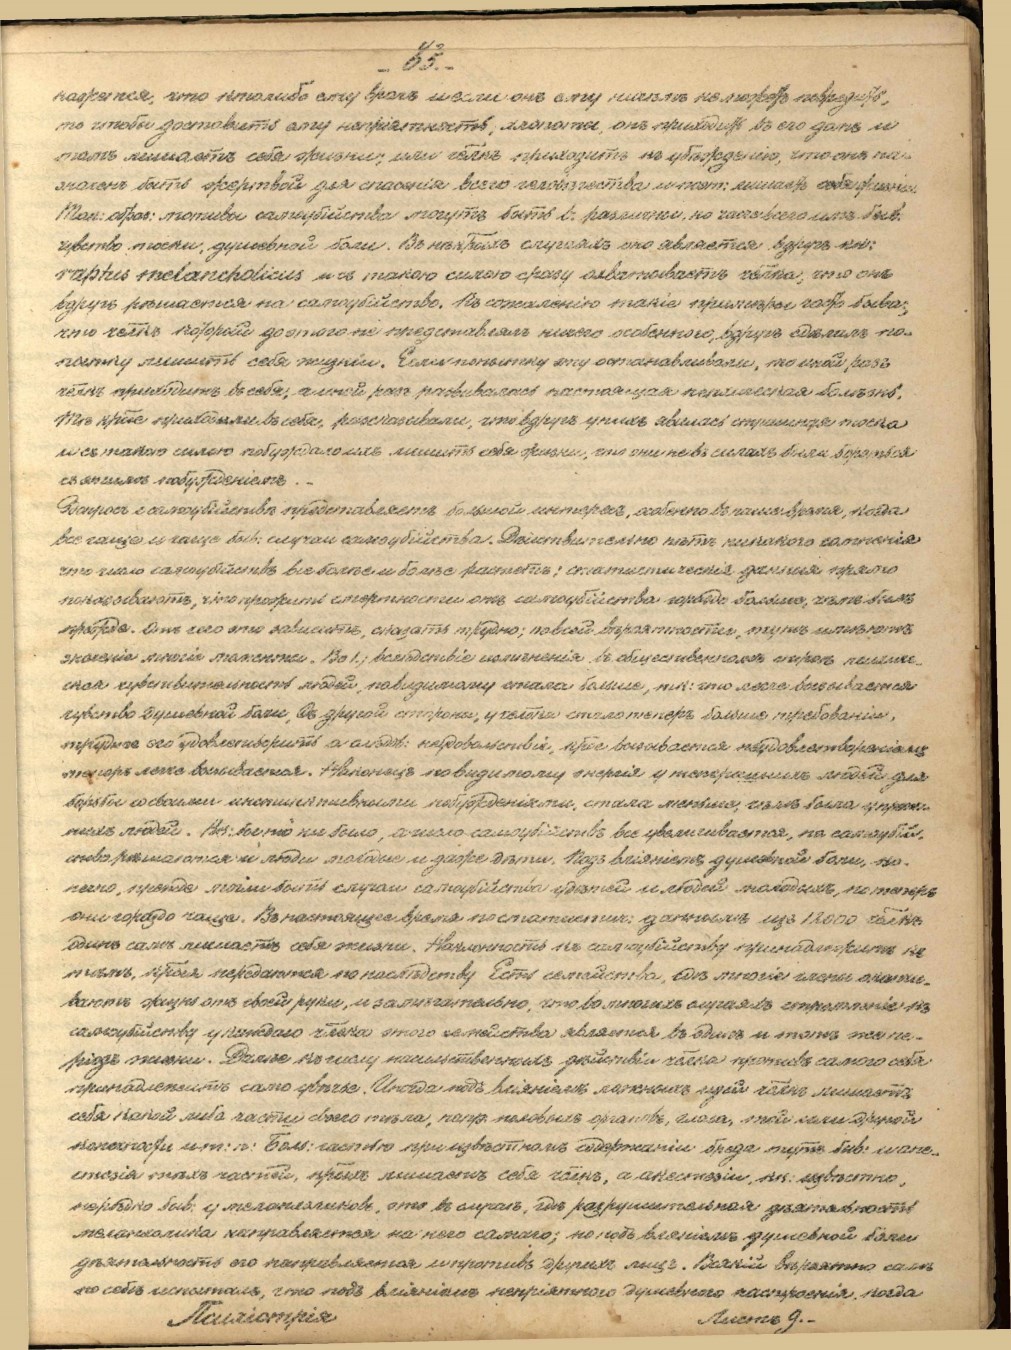 - 65. -
кажется, что кто либо ему врагъ и если онъ ему ничѣмъ не можетъ повредить,
то чтобы доставить ему непріятность, хлопоты, онъ приходитъ въ его домъ и
тамъ лишаетъ себя жизни; или члкъ приходитъ къ убѣжденію, что онъ на-
значенъ быть жертвой для спасенія всего человѣчества и пот: лишаетъ себя жизни.
Так: образ: мотивы самоубійства могутъ быть б. различны, но чаще всего имъ быв.
чувство тоски, душевной боли. Въ нѣкрыхъ случаяхъ оно является вдругъ кк:
raptus melancholicus и съ такою силою сразу охватываетъ члка, что онъ
вдругъ рѣшается на самоубійство. Къ сожалѣнію такіе примѣры часто быва:,
что члкъ который до этого не представлялъ ничего особеннаго, вдругъ сдѣлалъ по-
пытку лишить себя жизни. Если попытку эту останавливали, то иной разъ
члкъ приходитъ въ себя, а иной разъ развивалась настоящая психическая болѣзнь.
Тѣ крые приходили въ себя, разсказывали, что вдругъ у нихъ явилась страшная тоска
и съ такою силою побуждало ихъ лишить себя жизни, что они не въ силахъ были бороться
съ этимъ побужденіемъ. -
Вопросъ о самоубійствѣ представляетъ большой интересъ, особенно въ наше время, когда
все чаще и чаще быв: случаи самоубійства. Дѣйствительно нѣтъ никакого сомнѣнія
что число самоубійствъ все болѣе и болѣе растетъ; статистическія данныя прямо
показываютъ, что процентъ смертности отъ самоубійства гораздо больше, чѣмъ былъ
прежде. Отъ чего это зависитъ, сказать трудно; по всей вѣроятности, тутъ имѣютъ
значеніе многіе моменты. Во 1.; вслѣдствіе измѣненія въ общественномъ строѣ психиче-
ская чувствительность людей, повидимому стала больше, тк: что легче вызывается
чувство душевной боли, съ другой стороны, у члка стало теперь больше требованій,
труднѣе его удовлетворить а слѣд: недовольствіе, крое вызывается неудовлетвореніемъ
теперь легче вызывается. Наконецъ повидимому энергія у теперешнихъ людей для
борьбы со своими инстинктивными побужденіями, стала меньше, чѣмъ была у преж-
нихъ людей. Кк: бы то ни было, а число самоубійствъ все увеличивается, на самоубій-
ство рѣшаются и люди молодые и даже дѣти. Подъ вліяніемъ душевной боли, ко-
нечно, прежде могли быть случаи самоубійства у дѣтей и людей молодыхъ, но теперь
они гораздо чаще. Въ настоящее время по статистич: даннымъ изъ 12000 члкъ
одинъ самъ лишаетъ себя жизни. Наклонность къ самоубійству принадлежитъ къ
тѣмъ, крыя передаются по наслѣдству. Есть семейства, гдѣ многіе члены оканчи-
ваютъ жизнь отъ своей руки, и замѣчательно, что во многихъ случаяхъ стремленіе къ
самоубійству у каждаго члка этого семейства является въ одинъ и тотъ же пе-
ріодъ жизни. Далѣе къ числу насильственныхъ дѣйствій члка противъ самого себя
принадлежитъ само увѣчье. Иногда подъ вліяніемъ ложныхъ идей члкъ лишаетъ
себя какой либо части своего тѣла, напр. половыхъ органовъ, глаза, той или другой
конечности и т: п: Больш: частью при извѣстномъ содержаніи бреда тутъ быв: и ане-
стезія тѣхъ частей, крыхъ лишаетъ себя члкъ, а анестезіи, кк: извѣстно,
нерѣдко быв: у меланхоликовъ, это въ случаѣ, гдѣ разрушительная дѣятельность
меланхолика направляется на него самаго; но подъ вліяніемъ душевной боли
дѣятельность его направляется и противъ другихъ лицъ. Всякій вѣроятно самъ
по себѣ испыталъ, что подъ вліяніемъ непріятнаго душевнаго настроенія, когда
Психіатрія Листъ 9. -